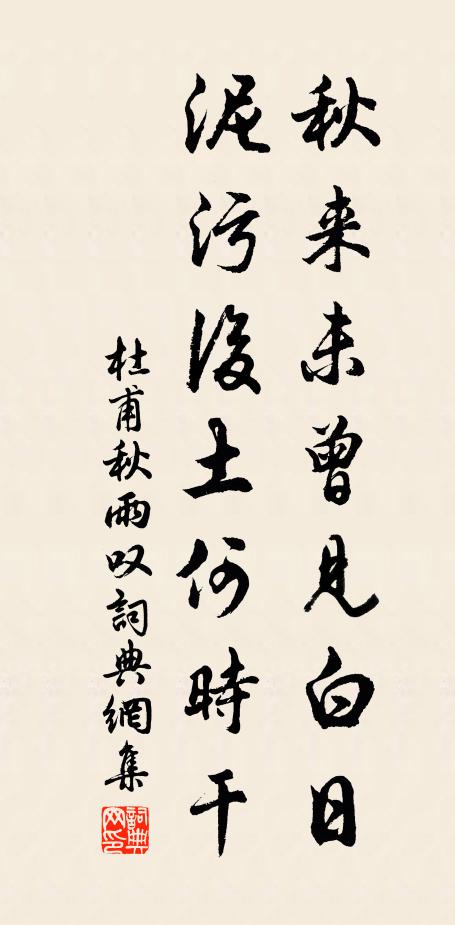 秋来未曾見白日
泥污後土何時干
杜甫秋雨叹詞典網集
詞典網印